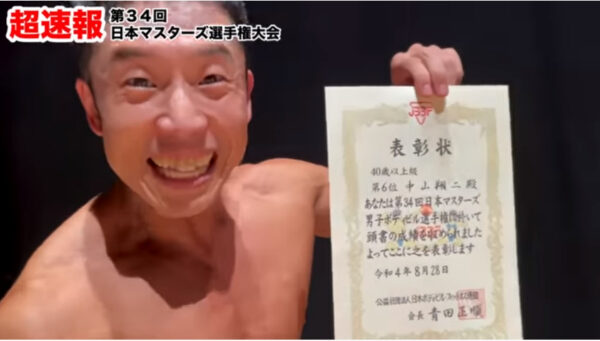 超速報
第34回
日本マスターズ選手権大会
JBBF
表彰状
40歳以上級
第6位 中山翔二殿
あなたは第34回日本マスターズ
男子ボディビル選手権に於いて
頭書の成績を収められました
よってここに之を表彰します
令和4年8月28日
公益社団法人日本ボディビル・フィットネス連盟
会長 青田正順